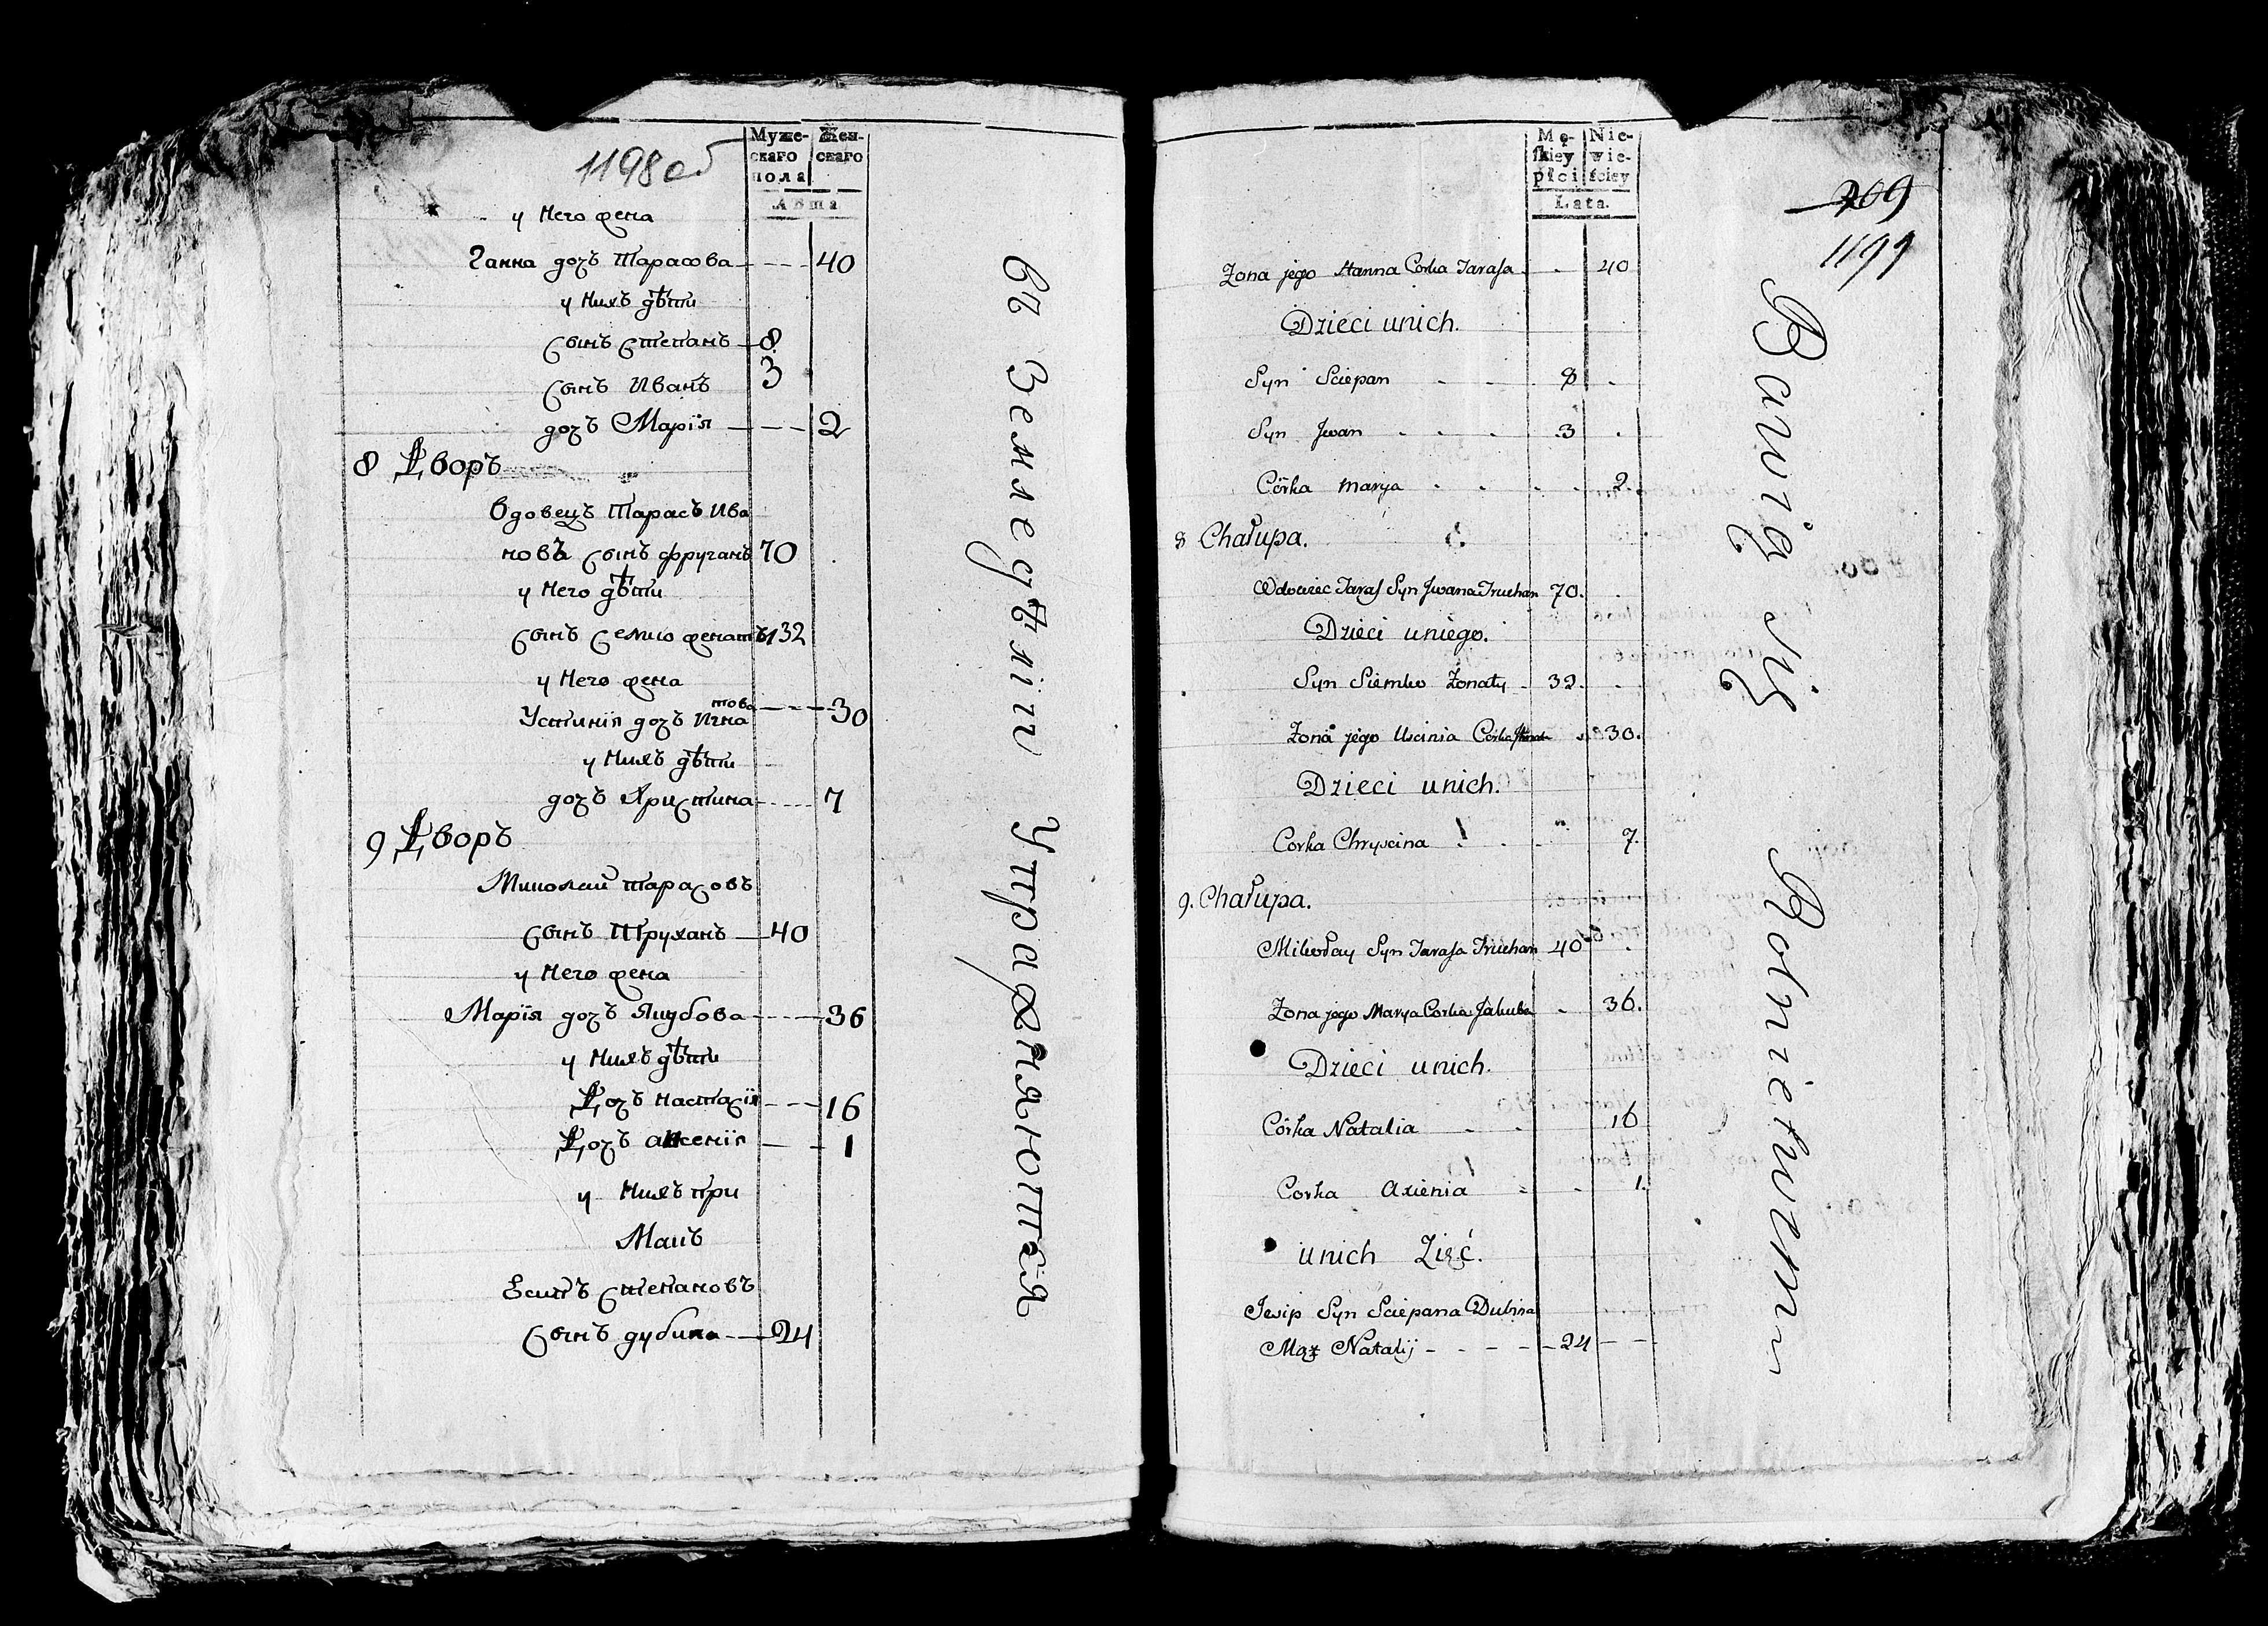 1198 об
Муже-
скаго
пола
Жен-
скаго
Лѣта
у него жена
Ганна дочъ Тарасова 40
у нихъ дѣти
сынъ степанъ 8
сынъ Иванъ 3
дочъ Марія 2
8 Дворъ
Вдовецъ Тарасъ Ива
новъ сынъ 70
у него дѣти
сынъ Семко женатъ 32
у него жена
това
Устинія дочъ Игна 30
у нихъ дѣти
дочъ Христина 7
9 Дворъ
Миколай тарасовъ
сынъ Труханъ 40
у него жена
Марія дочъ Якубова 36
у нихъ дѣти
Дочъ настасія 16
Дочъ аксенія 1
у нихъ при
Макъ
Есипъ степановъ
сынъ дубина 24
въ Земледѣліи Упражняются
Mę-
ſkiey
płci
Nie-
wie-
ściey
Lata.
269
1199
Zona jego Hanna Corka Tarasa 40
Dzieci unich.
Syn Sciepan 8
Syn Jwan 3
Córka Marya 2
8 Chałupa.
Wdowiec Taras Syn Jwana Truchan 70.
Dzieci uniego.
Syn Siemko Zonaty 32.
Zona jego Uscinia Córka 30.
Dzieci unich.
Corka Chryscina 7.
9. Chałupa.
Mikołay Syn Tarasa Truchan 40
Zona jego Marya Corka Jakuba 36.
Dzieci unich.
Córka Natalia 16
Corka Axienia 1.
unich Zięć.
Jesip Syn Sciepana Dubina
Mąż Natalij 24
Bawią się Rolnictwem